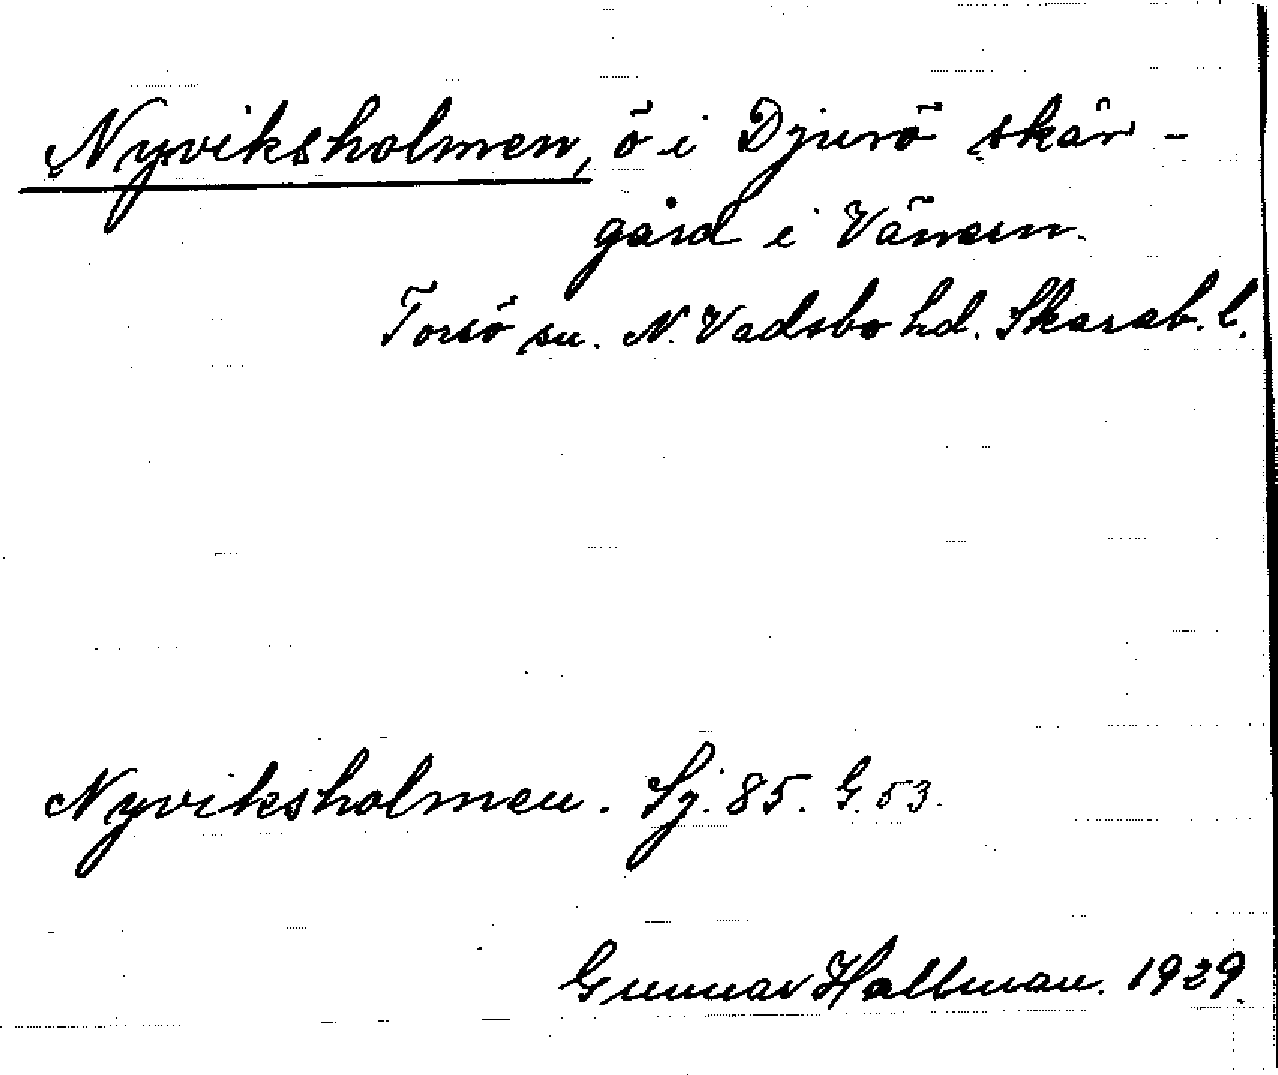 Nyviksholmen, ö i Djurö skär-
gård i Vänern.
Torsö sn. N. Vadsbo hd. Skarab. l.
Nyviksholmen. Sj. 85. G. 53.
Gunnar Hallman. 1929.